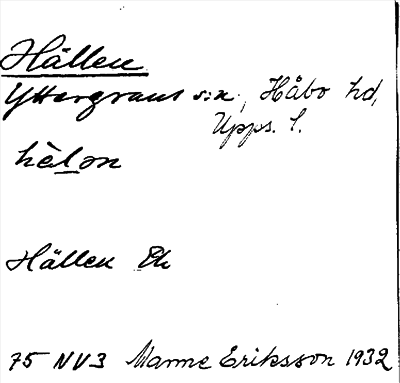 Hällen
Yttergrans s:n, Håbo hd,
Upps. l.
hèlon
Hällen Ek
75 NV3 Manne Eriksson 1932